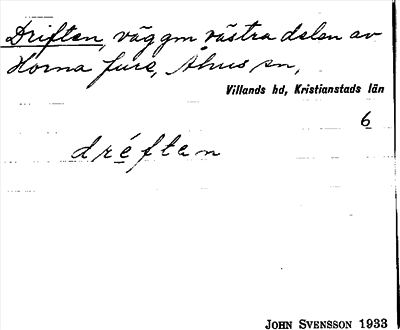 Driften, väg gm västra delen av
Horna fure, Åhus sn,
Villands hd, Kristianstads län
6
dréften
John Svensson 1933